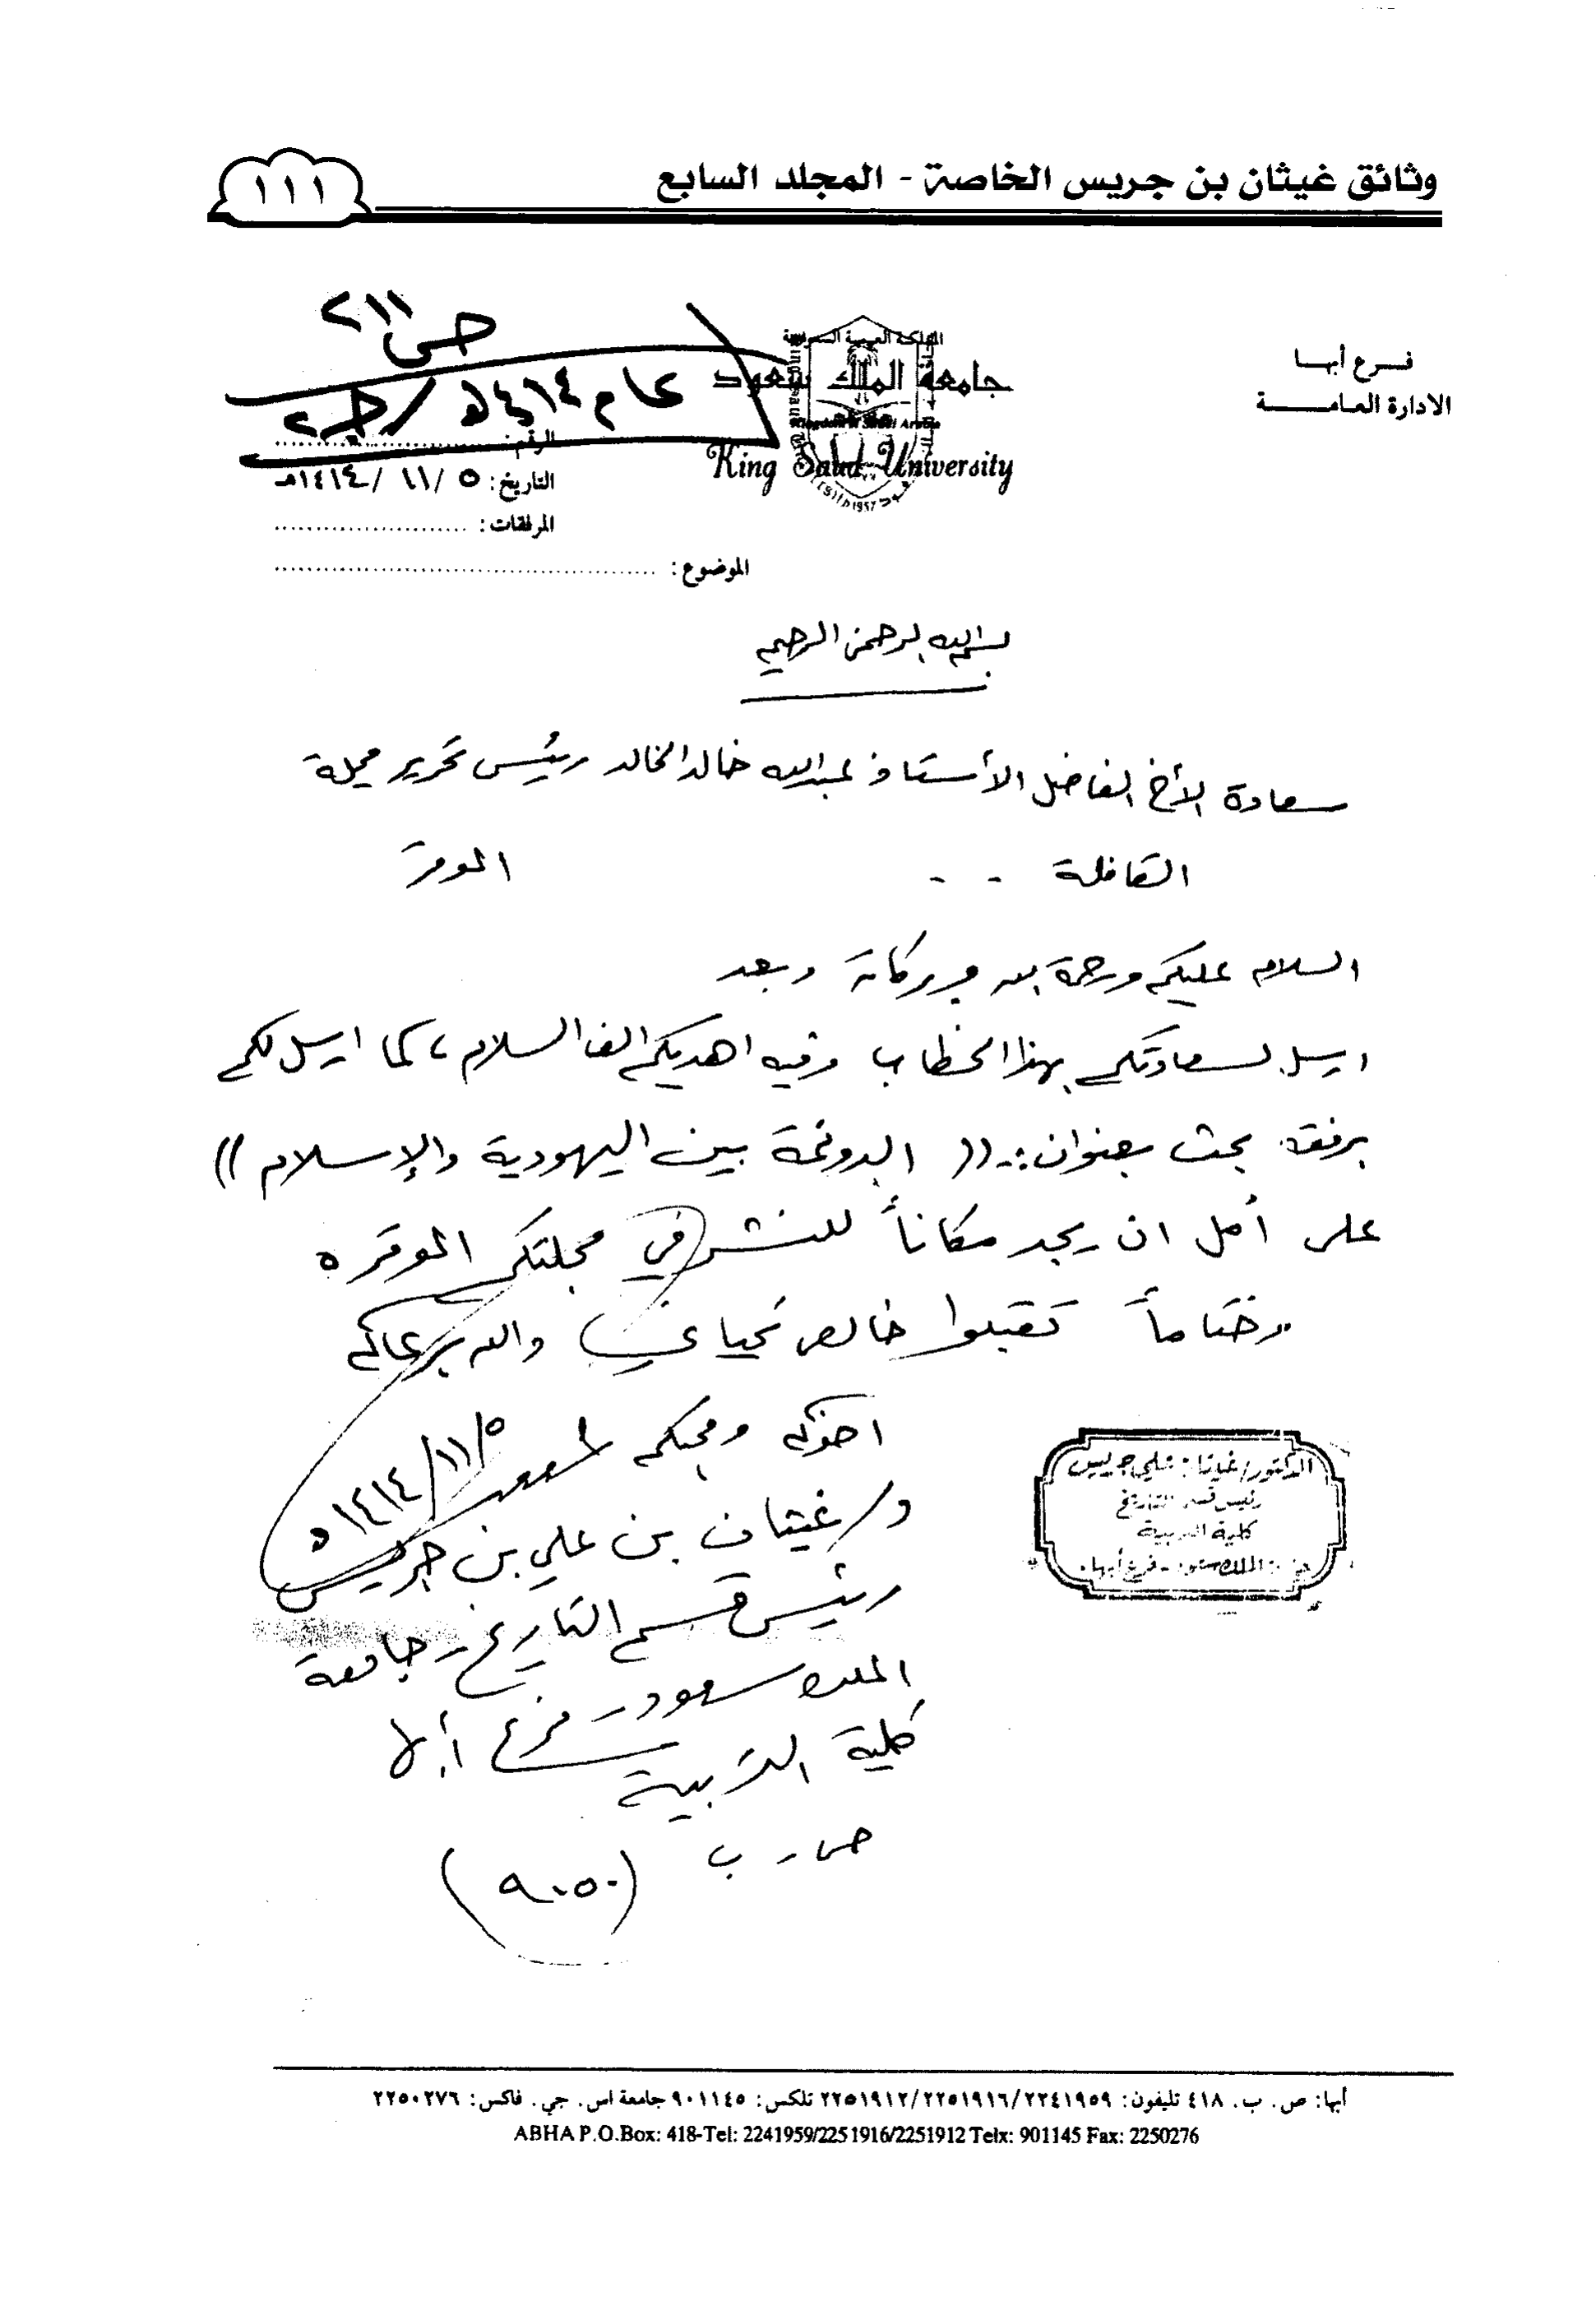 وثائق غيثان بن جريس الخاصة - المجلد السابع
١١١
فرع أبها
الادارة العامة
المملكة العربية السعودية
جامعة الملك سعود
King Saud University
ص ٢١١
عام ١٤١٤هـ / جـ ٢
الرقم:
التاريخ: ٥ / ١١ / ١٤١٤هـ
المرفقات:
الموضوع:
بسم الله الرحمن الرحيم
سعادة الأخ الفاضل الأستاذ عبدالله خالد الخالد رئيس تحرير مجلة
القافلة - - الموقر
السلام عليكم ورحمة الله وبركاته وبعد
ارسل لسعادتكم بهذا الخطاب وفيه اهديكم الف السلام، كما ارسل لكم
برفقه بحث بعنوان:- (( الدونمة بين اليهودية والإسلام ))
على أمل ان يجد مكاناً للنشر في مجلتكم الموقره
وختاماً تقبلوا خالص تحياتي والله يرعاكم
اخوكم ومحبكم
٥/١١/١٤١٤هـ
د/ غيثان بن علي بن جريس
رئيس قسم التاريخ - جامعة
الملك سعود - فرع أبها
كلية التربية
ص - ب (٩٠٥٠)
الدكتور/ غيثان علي جريس
رئيس قسم التاريخ
كلية التربية
الملك سعود - فرع أبها
أبها: ص. ب. ٤١٨ تليفون: ٢٢٤١٩٥٩/٢٢٥١٩١٦/٢٢٥١٩١٢ تلكس: ٩٠١١٤٥ جامعة اس. جي. فاكس: ٢٢٥٠٢٧٦
ABHA P.O.Box: 418-Tel: 2241959/2251916/2251912 Telx: 901145 Fax: 2250276